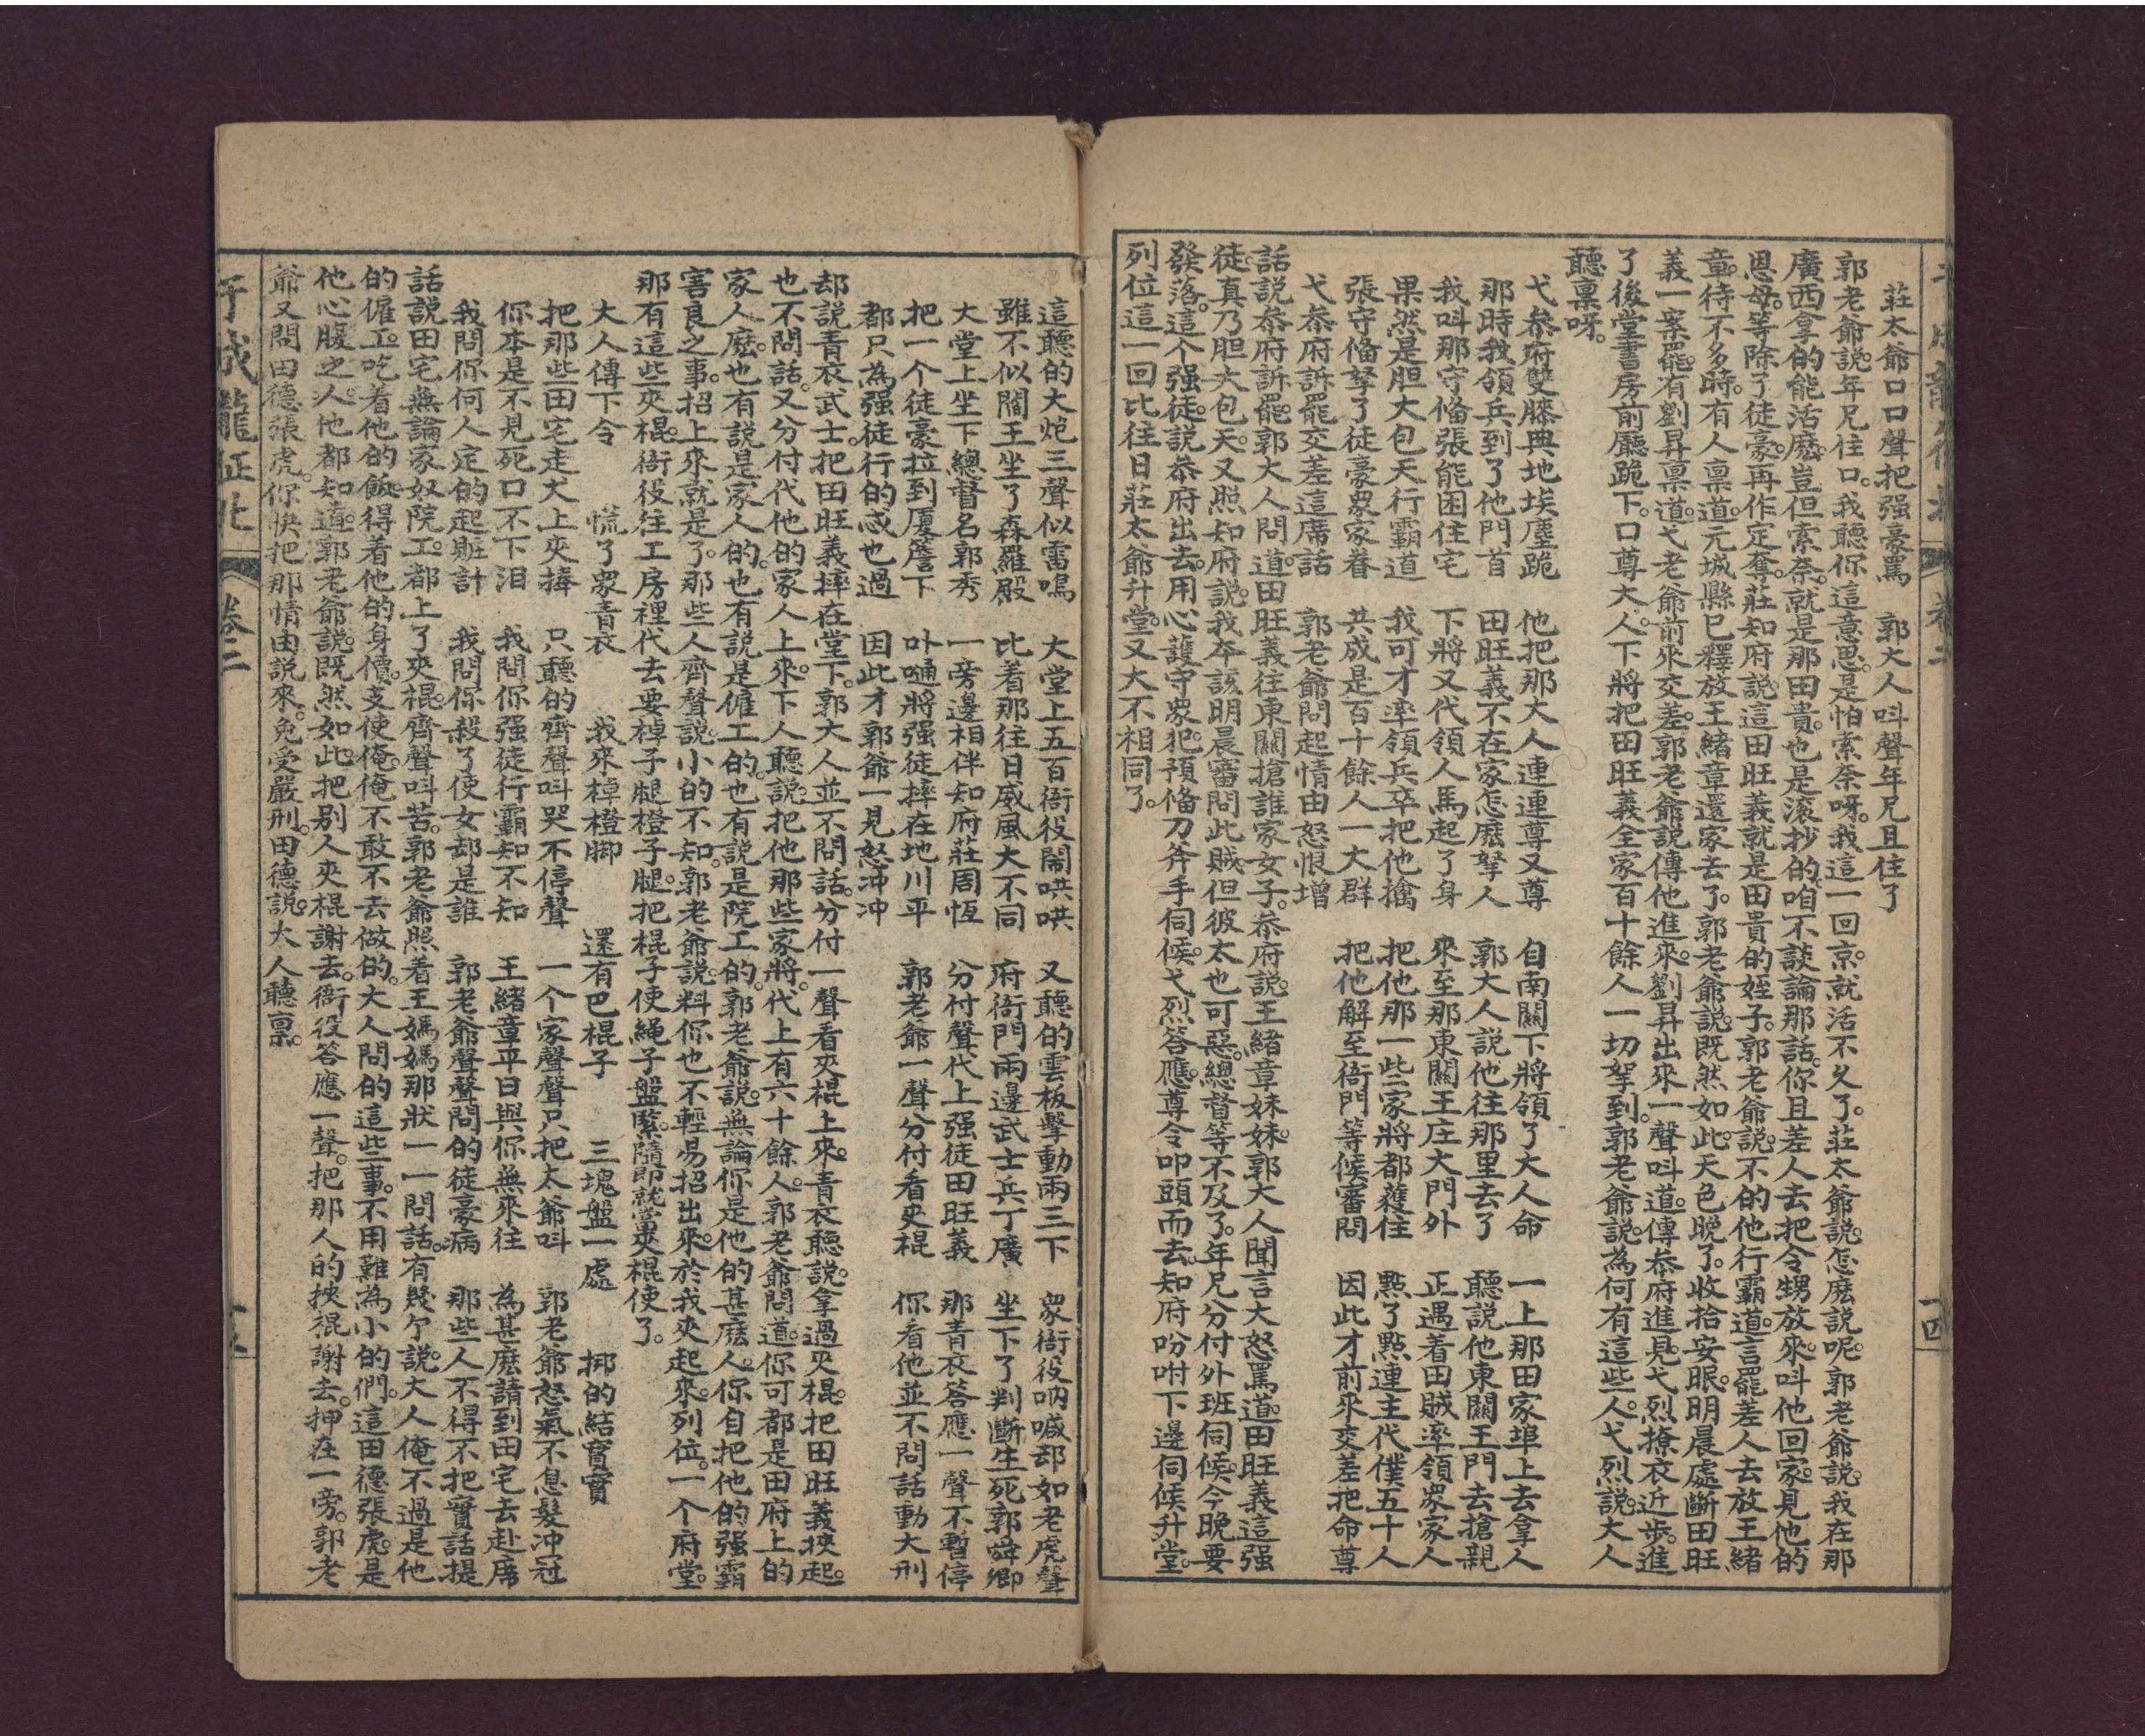 莊太爺口口聲把强豪罵　郭大人叫聲年兄且住了
郭老爺説。年兄住口。我聽你這意思。是怕索奈呀。我這一回京。就活不久了。莊太爺説。怎麽説呢。郭老爺説。我在那
廣西拿的能活麽。豈但索奈。就是那田貴。也是滚抄的。咱不談論那話。你且差人去把令甥放來。叫他回家。見他的
思母。等除了徒豪。再作定奪。莊知府説。這田旺義就是田貴的姪子。郭老爺説。不的他行霸道。言罷差人去放王緒
章。待不多時。有人禀道。元城縣已釋放王緒章還家去了。郭老爺説。既然如此。天色晚了。收拾安眠。明晨處斷田旺
義一案。罷。有劉昇禀道。弋老爺前來交差。郭老爺説。傳他進來。劉昇出來。一聲叫道。傳叅府進見。弋烈撩衣近步。進
了後堂書房前廳跪下。口尊大人。下將把田旺義全家百十餘人一切拏到。郭老爺説。為何有這些人。弋烈説。大人
聽禀呀。
弋叅府雙膝典地埃塵跪　他把那大人連連尊又尊　自南關下將領了大人命　一上那田家埠上去拿人
那時我領兵到了他門首　田旺義不在家怎麽拏人　郭大人説他往那里去了　聽説他東關王門去搶親
我叫那守俻張能困住宅　下將又代領人馬起了身　來至那東關王庄大門外　正遇着田賊率領衆家人
果然是胆大包天行霸道　我可才率領兵卒把他擒　把他那一些家將都護住　點了點連主代僕五十人
張守俻拏了徒豪衆家眷　共成是百十餘人一大群　把他解至衙門等候審問　因此才前來交差把命尊
弋叅府訴罷交差這席話　郭老爺問起情由怒恨增
話説叅府訴罷。郭大人問道。田旺義往東關搶誰家女子。叅府説。王緒章妹妹。郭大人聞言大怒罵道。田旺義這强
徒。真乃胆大包天。又照知府説。我夲該明晨審問此賊。但彼太也可惡。總督等不及了。年兄分付外班伺候。今晚要
發落。這个强徒。説叅府出去。用心護守衆犯。預俻刀斧手伺候。弋烈答應。尊令叩頭而去。知府吩咐下邊伺候升堂。
列位這一回比往日莊太爺升堂。又大不相同了。
一四
這聽的大炮三聲似雷鳴　大堂上五百衙役閙哄哄　又聽的雲板擊動兩三下　衆衙役吶喊却如老虎聲
雖不似閻王坐了森羅殿　比着那往日威風大不同　府衙門兩邊武士兵丁廣　坐下了判斷生死郭舜卿
大堂上坐下總督名郭秀　一旁邊相伴知府莊周恆　分付聲代上强徒田旺義　那青衣答應一聲不暫停
把一个徒豪拉到厦詹下　卟嗵將强徒摔在地川平　郭老爺一聲分付看夾棍　你看他並不問話動大刑
都只為强徒行的忒也過　因此才郭爺一見怒冲冲
却説青衣武士。把田旺義摔在堂下。郭大人並不問話。分付一聲看夾棍上來。青衣聽説。拿過夾棍。把田旺義挾起。
也不問話。又分付代他的家人上來。下人聽説。把他那些家將。代上有六十餘人。郭老爺問道。你可都是田府上的
家人麽。也有説是家人的。也有説是僱工的。也有説是院工的。郭老爺説。無論你是他的甚麽人。你自把他的强霸
害良之事。招上來就是了。那些人齊聲説。小的不知。郭老爺説。料你也不輕易招出來。於我夾起來。列位。一个府堂。
那有這些夾棍。衙役往工房裡代去要棹子腿橙子腿。把棍子使繩子盤緊。隨即就當夾棍使了。
大人傳下令　慌了衆青衣　我來棹橙脚　還有巴棍子　三塊盤一處　㧍的結實實
把那些田宅走犬上夾捧　只聽的齊聲叫哭不停聲　一个家聲聲只把太爺叫　郭老爺怒氣不息髮冲冠
你本是不見死口不下泪　我問你强徒行霸知不知　王緒章平日與你無來往　為甚麽請到田宅去赴席
我問你何人定的起賍計　我問你殺了使女却是誰　郭老爺聲聲問的徒豪病　那些人不得不把實話提
話説田宅無論家奴院工。都上了夾棍。齊聲叫苦。郭老爺照着王媽媽那狀一一問話。有幾个説。大人俺不過是他
的僱工。吃着他的飯。得着他的身價。支使俺。俺不敢不去做的。大人問的這些事。不用難為小的們。這田德張虎。是
他心腹之人。他都知道。郭老爺説。既然如此。把别人夾棍謝去。衙役答應一聲。把那人的挾棍謝去。押在一旁。郭老
爺又問田德張虎。你快把那情由説來。免受嚴刑。田德説。大人聽禀。
于成龍征北　卷二